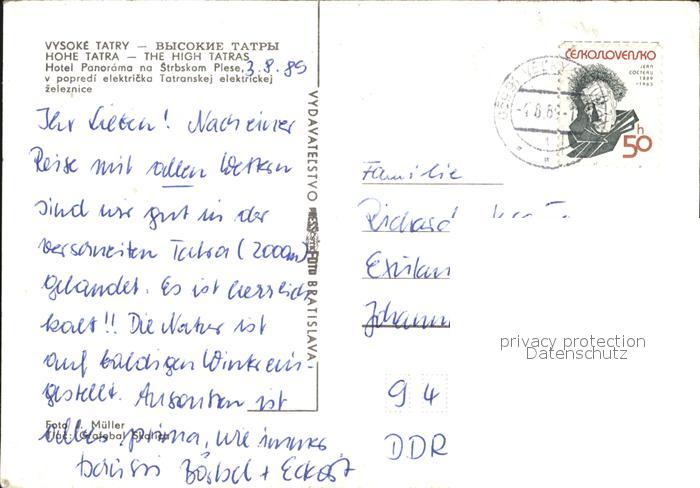 VYSOKÉ TATRY — ВЫСОКИЕ ТАТРЫ
HOHE TATRA — THE HIGH TATRAS
Hotel Panoráma na Štrbskom Plese,
v popredí električka Tatranskej elektrickej
železnice
3.8.89
Ihr Lieben! Nach einer
Reise mit allen Wettern
sind wir gut in der
verschneiten Tatra (2000m)
gelandet. Es ist herrlich
kalt!! Die Natur ist
auf baldigen Winter ein-
gestellt. Ansonsten ist
alles prima, wie immer
Bärbel + Eckart
Foto J. Müller
VYDAVATEĽSTVO
BRATISLAVA
ČESKOSLOVENSKO
JEAN
COCTEAU
1889
-1963
50 h
Familie
Richard
Johann
94
DDR
privacy protection
Datenschutz